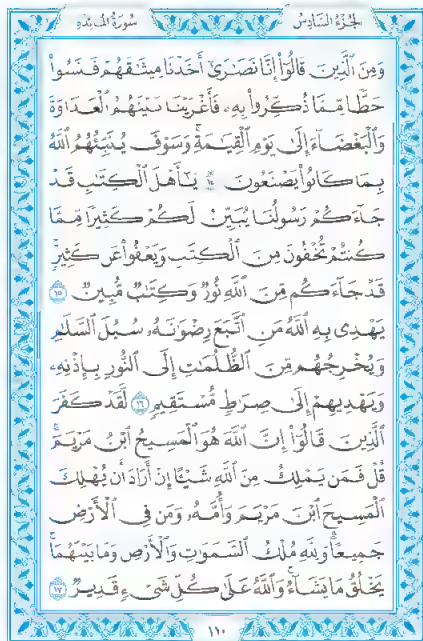 الجزء السادس سورة المائدة
وَمِنَ ٱلَّذِينَ قَالُوٓا۟ إِنَّا نَصَٰرَىٰٓ أَخَذْنَا مِيثَٰقَهُمْ فَنَسُوا۟
حَظًّا مِّمَّا ذُكِّرُوا۟ بِهِۦ فَأَغْرَيْنَا بَيْنَهُمُ ٱلْعَدَاوَةَ
وَٱلْبَغْضَآءَ إِلَىٰ يَوْمِ ٱلْقِيَٰمَةِ ۚ وَسَوْفَ يُنَبِّئُهُمُ ٱللَّهُ
بِمَا كَانُوا۟ يَصْنَعُونَ ١٤ يَٰٓأَهْلَ ٱلْكِتَٰبِ قَدْ
جَآءَكُمْ رَسُولُنَا يُبَيِّنُ لَكُمْ كَثِيرًا مِّمَّا
كُنتُمْ تُخْفُونَ مِنَ ٱلْكِتَٰبِ وَيَعْفُوا۟ عَن كَثِيرٍ ۚ
قَدْ جَآءَكُم مِّنَ ٱللَّهِ نُورٌ وَكِتَٰبٌ مُّبِينٌ ١٥
يَهْدِى بِهِ ٱللَّهُ مَنِ ٱتَّبَعَ رِضْوَٰنَهُۥ سُبُلَ ٱلسَّلَٰمِ
وَيُخْرِجُهُم مِّنَ ٱلظُّلُمَٰتِ إِلَى ٱلنُّورِ بِإِذْنِهِۦ
وَيَهْدِيهِمْ إِلَىٰ صِرَٰطٍ مُّسْتَقِيمٍ ١٦ لَّقَدْ كَفَرَ
ٱلَّذِينَ قَالُوٓا۟ إِنَّ ٱللَّهَ هُوَ ٱلْمَسِيحُ ٱبْنُ مَرْيَمَ ۚ
قُلْ فَمَن يَمْلِكُ مِنَ ٱللَّهِ شَيْـًٔا إِنْ أَرَادَ أَن يُهْلِكَ
ٱلْمَسِيحَ ٱبْنَ مَرْيَمَ وَأُمَّهُۥ وَمَن فِى ٱلْأَرْضِ
جَمِيعًا ۗ وَلِلَّهِ مُلْكُ ٱلسَّمَٰوَٰتِ وَٱلْأَرْضِ وَمَا بَيْنَهُمَا ۚ
يَخْلُقُ مَا يَشَآءُ ۚ وَٱللَّهُ عَلَىٰ كُلِّ شَىْءٍ قَدِيرٌ ١٧
١١٠